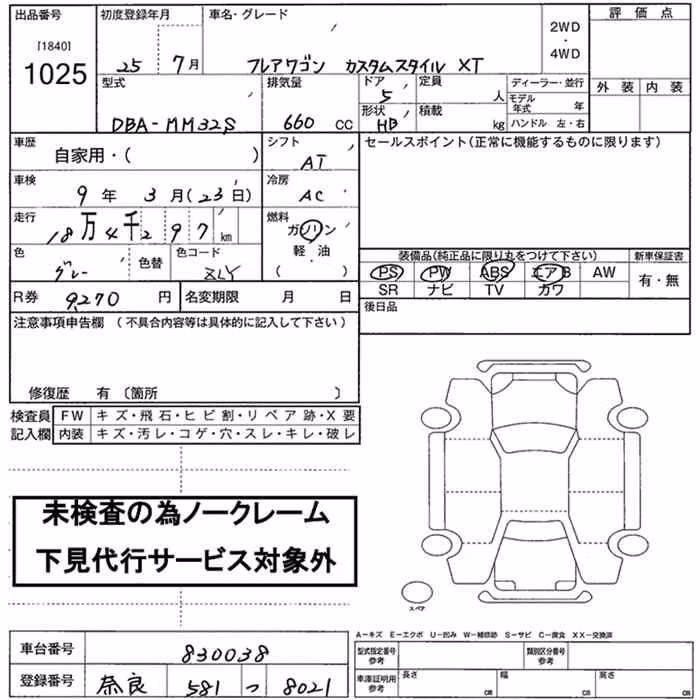 出品番号 初度登録年月 車名・グレード 評価点
[1840] 2WD
1025 25 7月 フレアワゴン カスタムスタイル XT ・
4WD
型式 排気量 ドア 5 定員 人 ディーラー・並行 外装 内装
DBA-MM32S 660 cc 形状 HB 積載 kg モデル年式 年
ハンドル 左・右
車歴 自家用・( ) シフト AT セールスポイント(正常に機能するものに限ります)
車検 9年 3月(23日) 冷房 AC
走行 18万4千297km 燃料 ガソリン
軽・油
( )
色 グレー 色替 色コード ZLY
装備品(純正品に限り丸をつけて下さい) 新車保証書
PS PW ABS エアB AW 有・無
SR ナビ TV カワ
R券 9,270円 名変期限 月 日 後日品
注意事項申告欄 (不具合内容等は具体的に記入して下さい)
修復歴 有 〔箇所 〕
検査員 FW キズ・飛石・ヒビ割・リペア跡・X要
記入欄 内装 キズ・汚レ・コゲ・穴・スレ・キレ・破レ
未検査の為ノークレーム
下見代行サービス対象外
スペア
A−キズ E−エクボ U−凹み W−補修跡 S−サビ C−腐食 XX−交換済
車台番号 830038 型式指定番号 参考 類別区分番号 参考
登録番号 奈良 581 つ 8021 車庫証明用 参考 長さ cm 幅 cm 高さ cm